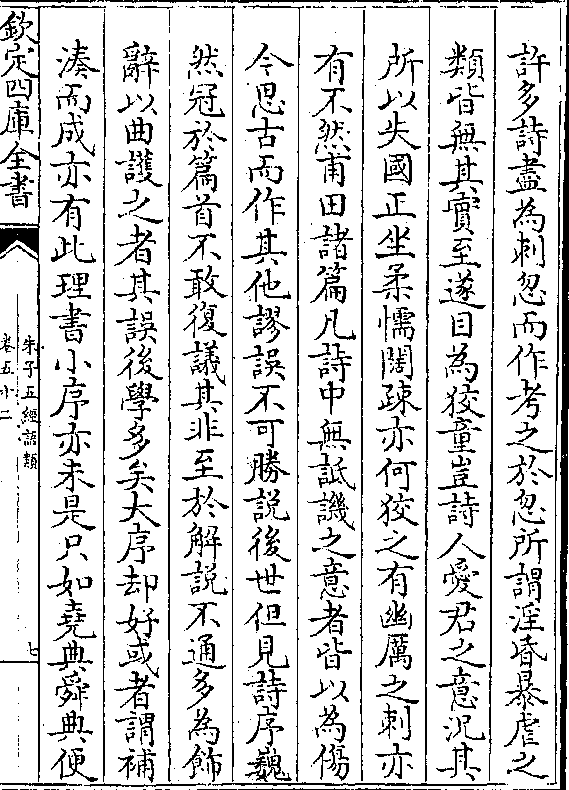 許多詩盡為刺忽而作考之於忽所謂淫昏暴虐之
類皆無其實至遂目為狡童豈詩人愛君之意況其
所以失國正坐柔懦闊疎亦何狡之有幽厲之刺亦
有不然甫田諸篇凡詩中無詆譏之意者皆以為傷
今思古而作其他謬誤不可勝說後世但見詩序巍
然冠於篇首不敢復議其非至於解說不通多為飾
辭以曲護之者其誤後學多矣大序却好或者謂補
湊而成亦有此理書小序亦未是只如堯典舜典便
欽定四庫全書
朱子五經語類
卷五十二
七